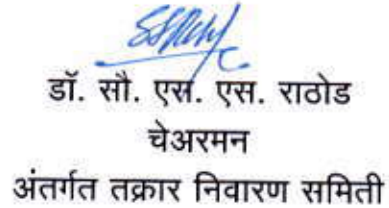 डॉ. सौ. एस. एस. राठोड
चेअरमन
अंतर्गत तक्रार निवारण समिती